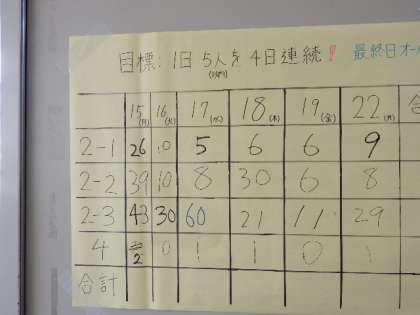 目標:1日5人を4日連続! 最終日オール
15(月) 16(火) 17(水) 18(木) 19(金) 22(月) 合
2-1 26 10 5 6 6 9
2-2 39 10 8 30 6 8
2-3 43 30 60 21 11 29
4 2 0 1 1 0 1
合計